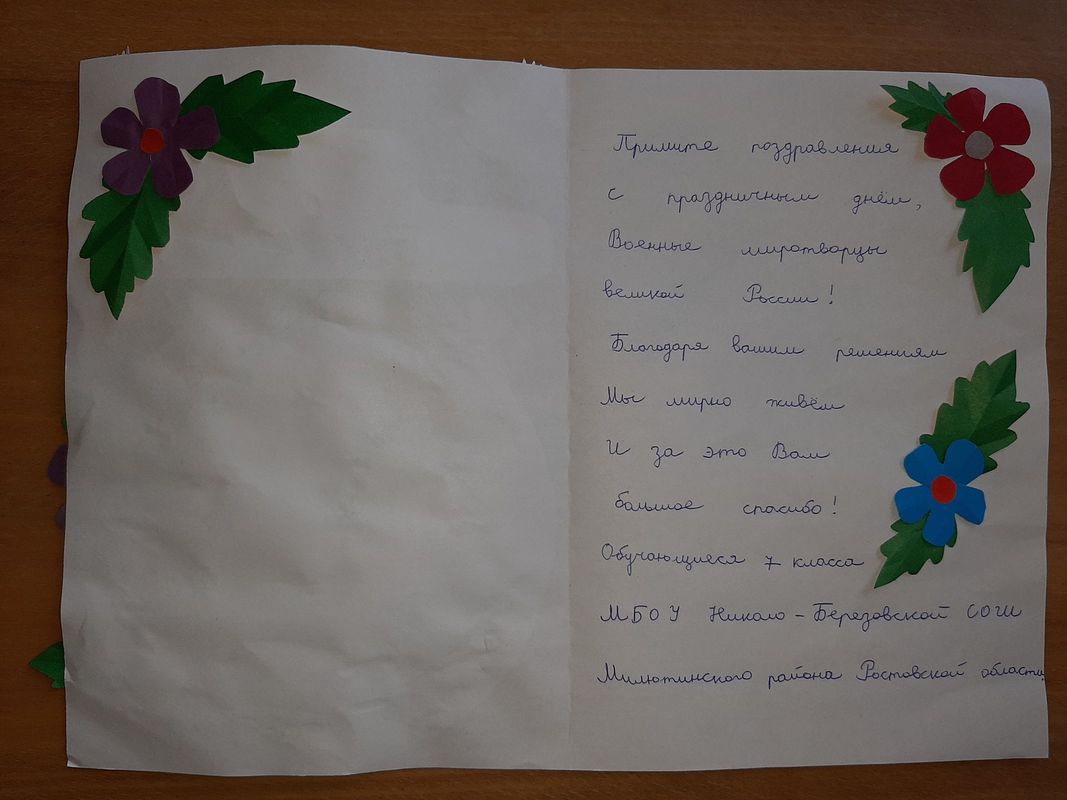 Примите поздравления
с праздничным днём,
Военные миротворцы
великой России!
Благодаря вашим решениям
Мы мирно живём
И за это Вам
большое спасибо!
Обучающиеся 7 класса
МБОУ Николо-Березовской СОШ
Милютинского района Ростовской области.